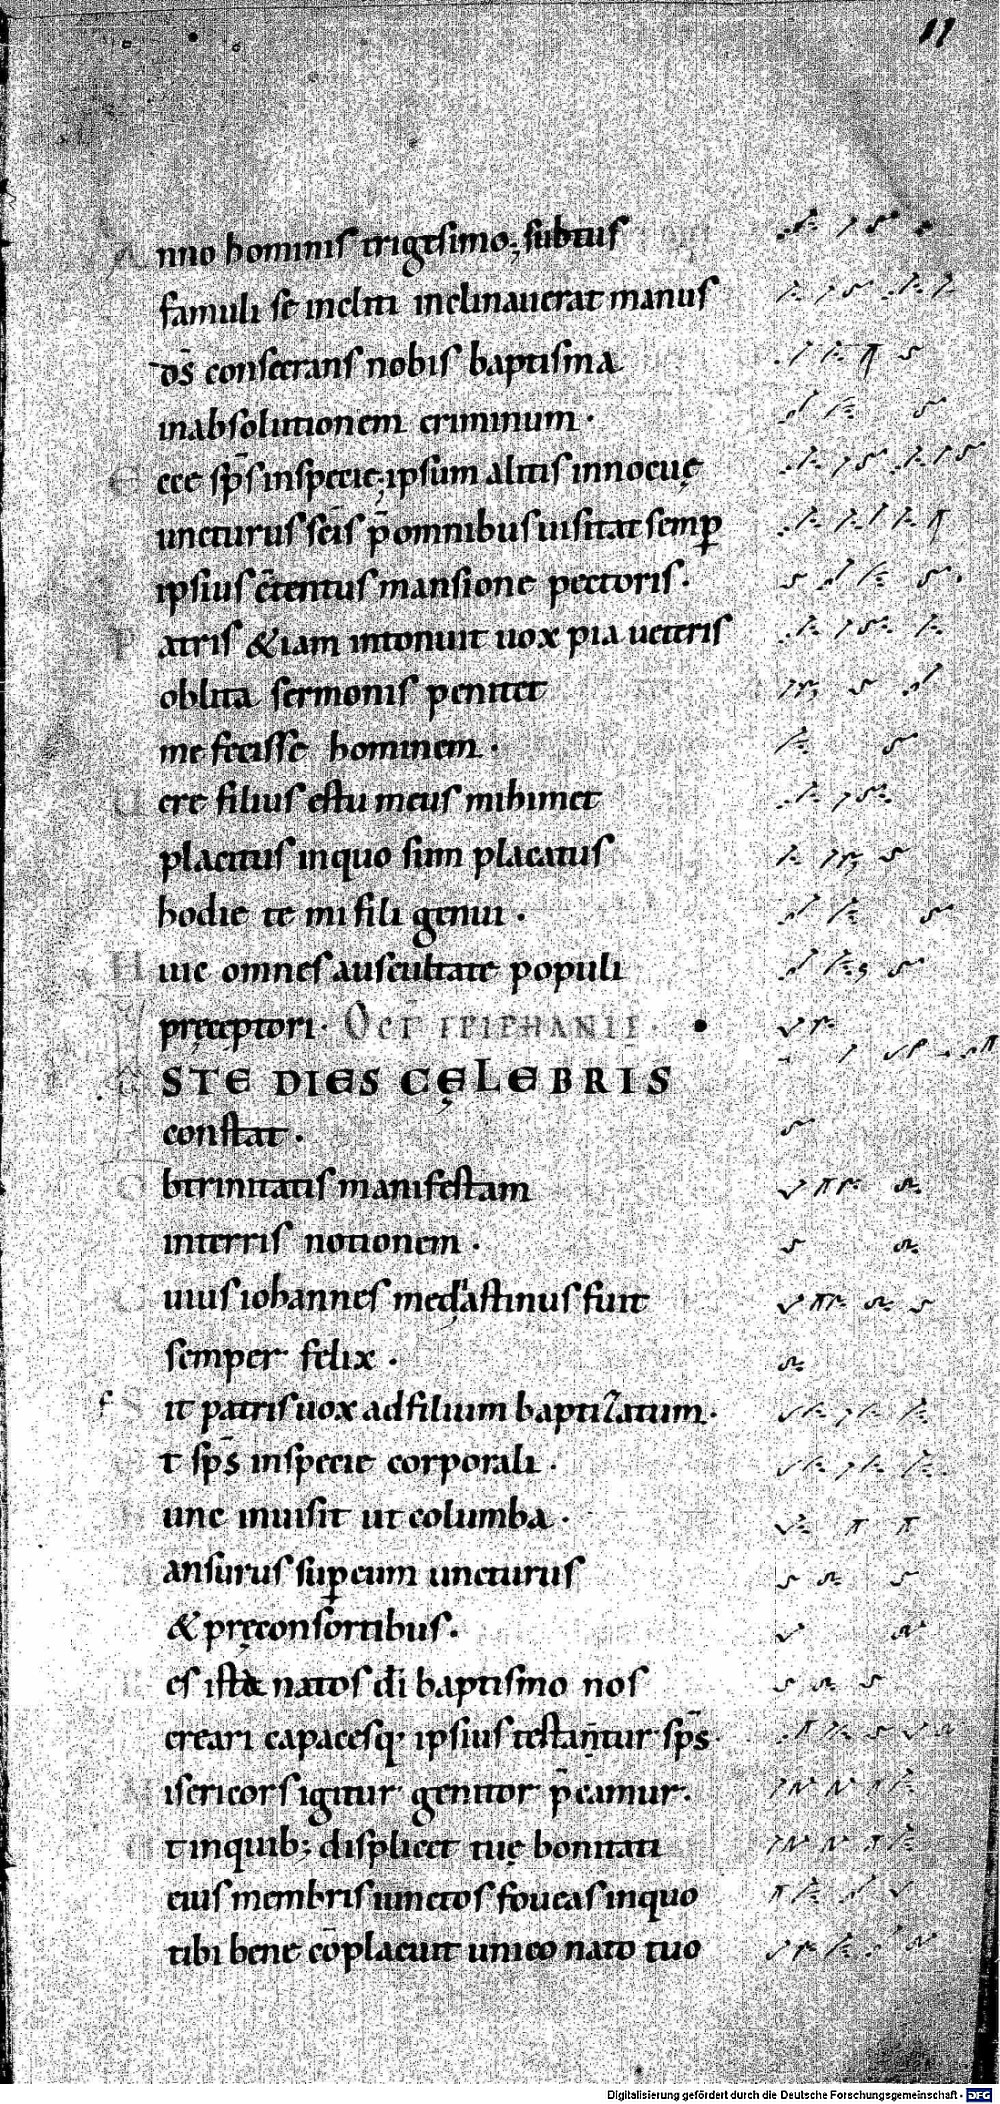 11
Anno hominis trigesimo; subtus
famuli se incliti inclinauerat manus
d̄s consecrans nobis baptisma
inabsolutionem criminum·
Ecce sp̄s inspecie; ipsum altis innocuę
uncturus sc̄is p̄ omnibus uisitat semꝑ
ipsius c̄tentus mansione pectoris·
Patris &iam intonuit uox pia ueteris
oblita sermonis penitet
me fecisse hominem·
Uere filius es tu meus mihimet
placitus inquo sum placatus
hodie te mi fili genui·
Huic omnes auscultate populi
pręceptori· Oct̄ EPIPHANIE·
ISTE DIES CĘLEBRIS
constat·
Obtrinitatis manifestam
interris notionem·
Cuius iohannes medi̓astinus fuit
semper felix·
f Sit patris uox adfilium baptizatum·
t sp̄s inspecie corporali·
unc inuisit ut columba·
Mansurus suꝑ eum uncturus
& pręconsortibus·
es ista natos dī baptismo nos
creari capacesq· ipsius testan̄tur sp̄s·
Misericors igitur genitor p̄camur·
Et inquib; displicet tuę bonitati
eius membris iunctos foueas inquo
tibi bene cōplacuit unico nato tuo
Digitalisierung gefördert durch die Deutsche Forschungsgemeinschaft - DFG